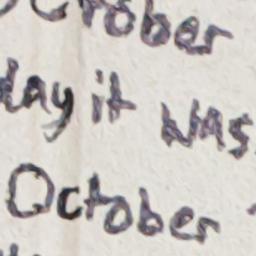 October
day it was
October